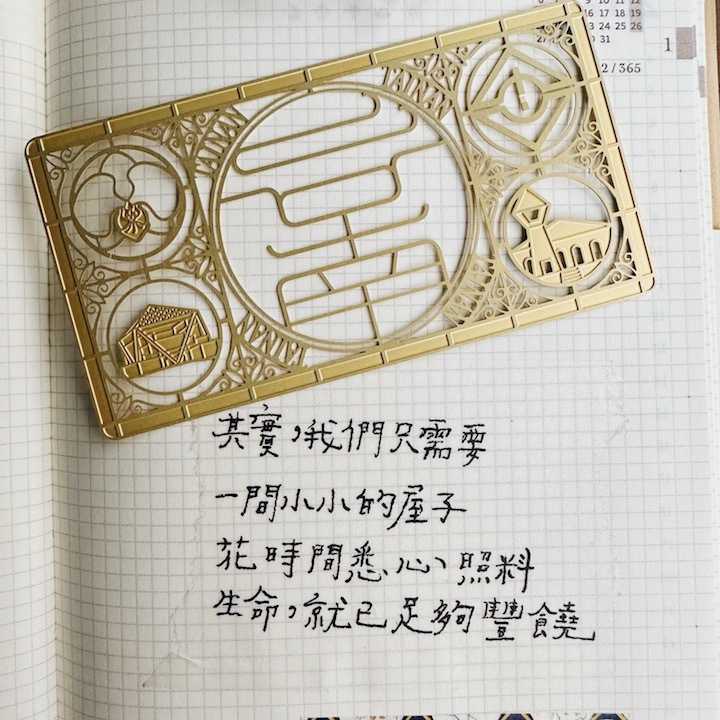 10 11 12
17 18 19
24 25 26
31
1
2/365
TAINAN
TAINAN
TAINAN
TAINAN
其實，我們只需要
一間小小的屋子
花時間悉心照料
生命，就已足夠豐饒